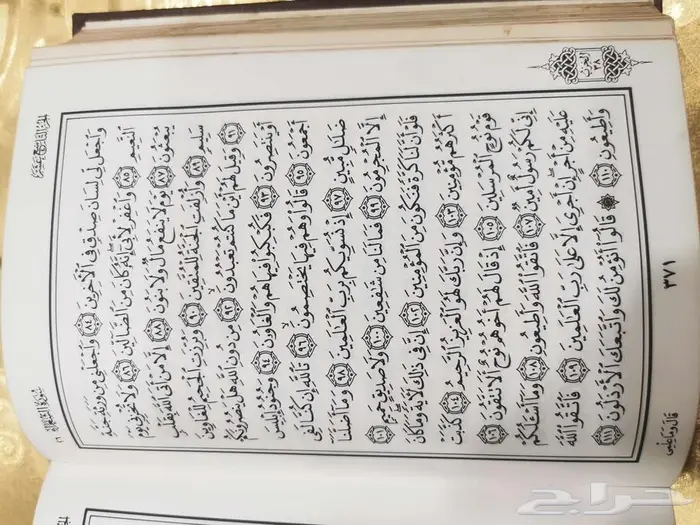 الجزء التاسع عشر
سورة الشعراء ٢٦
وَٱجْعَل لِّى لِسَانَ صِدْقٍ فِى ٱلْـَٔاخِرِينَ ٨٤ وَٱجْعَلْنِى مِن وَرَثَةِ جَنَّةِ
ٱلنَّعِيمِ ٨٥ وَٱغْفِرْ لِأَبِىٓ إِنَّهُۥ كَانَ مِنَ ٱلضَّآلِّينَ ٨٦ وَلَا تُخْزِنِى يَوْمَ
يُبْعَثُونَ ٨٧ يَوْمَ لَا يَنفَعُ مَالٌ وَلَا بَنُونَ ٨٨ إِلَّا مَنْ أَتَى ٱللَّهَ بِقَلْبٍ
سَلِيمٍ ٨٩ وَأُزْلِفَتِ ٱلْجَنَّةُ لِلْمُتَّقِينَ ٩٠ وَبُرِّزَتِ ٱلْجَحِيمُ لِلْغَاوِينَ
٩١ وَقِيلَ لَهُمْ أَيْنَ مَا كُنتُمْ تَعْبُدُونَ ٩٢ مِن دُونِ ٱللَّهِ هَلْ يَنصُرُونَكُمْ
أَوْ يَنتَصِرُونَ ٩٣ فَكُبْكِبُوا۟ فِيهَا هُمْ وَٱلْغَاوُۥنَ ٩٤ وَجُنُودُ إِبْلِيسَ
أَجْمَعُونَ ٩٥ قَالُوا۟ وَهُمْ فِيهَا يَخْتَصِمُونَ ٩٦ تَٱللَّهِ إِن كُنَّا لَفِى
ضَلَٰلٍ مُّبِينٍ ٩٧ إِذْ نُسَوِّيكُم بِرَبِّ ٱلْعَٰلَمِينَ ٩٨ وَمَآ أَضَلَّنَآ
إِلَّا ٱلْمُجْرِمُونَ ٩٩ فَمَا لَنَا مِن شَٰفِعِينَ ١٠٠ وَلَا صَدِيقٍ حَمِيمٍ ١٠١
فَلَوْ أَنَّ لَنَا كَرَّةً فَنَكُونَ مِنَ ٱلْمُؤْمِنِينَ ١٠٢ إِنَّ فِى ذَٰلِكَ لَـَٔايَةً وَمَا كَانَ
أَكْثَرُهُم مُّؤْمِنِينَ ١٠٣ وَإِنَّ رَبَّكَ لَهُوَ ٱلْعَزِيزُ ٱلرَّحِيمُ ١٠٤ كَذَّبَتْ
قَوْمُ نُوحٍ ٱلْمُرْسَلِينَ ١٠٥ إِذْ قَالَ لَهُمْ أَخُوهُمْ نُوحٌ أَلَا تَتَّقُونَ ١٠٦
إِنِّى لَكُمْ رَسُولٌ أَمِينٌ ١٠٧ فَٱتَّقُوا۟ ٱللَّهَ وَأَطِيعُونِ ١٠٨ وَمَآ أَسْـَٔلُكُمْ
عَلَيْهِ مِنْ أَجْرٍ إِنْ أَجْرِىَ إِلَّا عَلَىٰ رَبِّ ٱلْعَٰلَمِينَ ١٠٩ فَٱتَّقُوا۟ ٱللَّهَ
وَأَطِيعُونِ ١١٠ ۞ قَالُوٓا۟ أَنُؤْمِنُ لَكَ وَٱتَّبَعَكَ ٱلْأَرْذَلُونَ ١١١
الحزب ٣٨
٣٧١
قَالَ وَمَا عِلْمِى
حراج